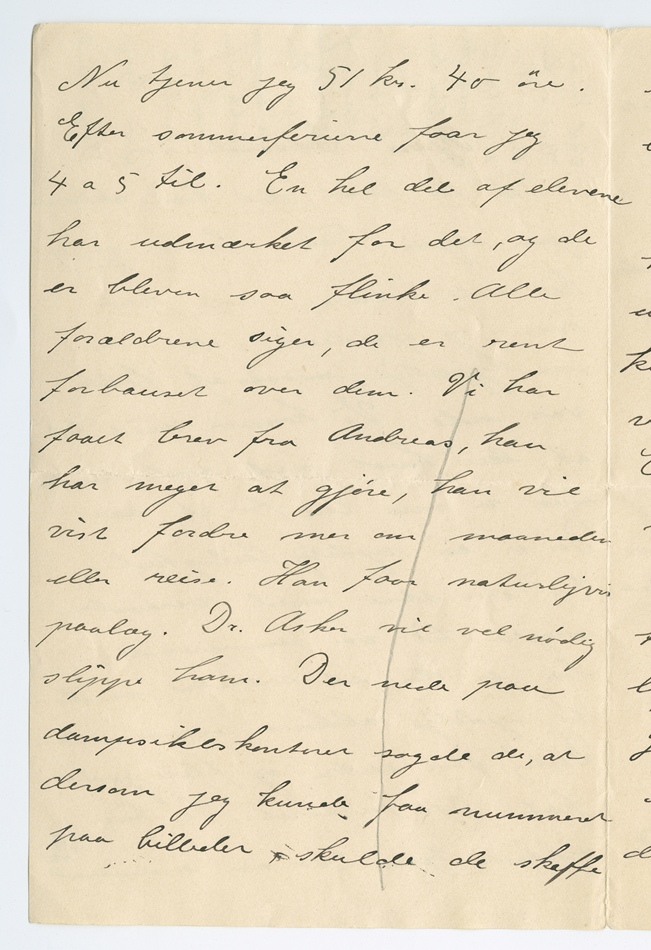 Nu tjener jeg 51 kr. 40 öre.
Efter sommerferierne faar jeg
4 a 5 til. En hel del af elevene
har udmærket for det, og de
er bleven saa flinke. Alle
forældrene siger, de er rent
forbauset over dem. Vi har
faaet brev fra Andreas, han
har meget at gjøre, han vil
vist fordre mer om maaneden
eller reise. Han faar naturligvis
paalæg. Dr. Asker vil vel nödig
slippe ham. Der nede paa
sagde de, at
dersom jeg kunde faa nummeret
paa billeder skulde de skaffe